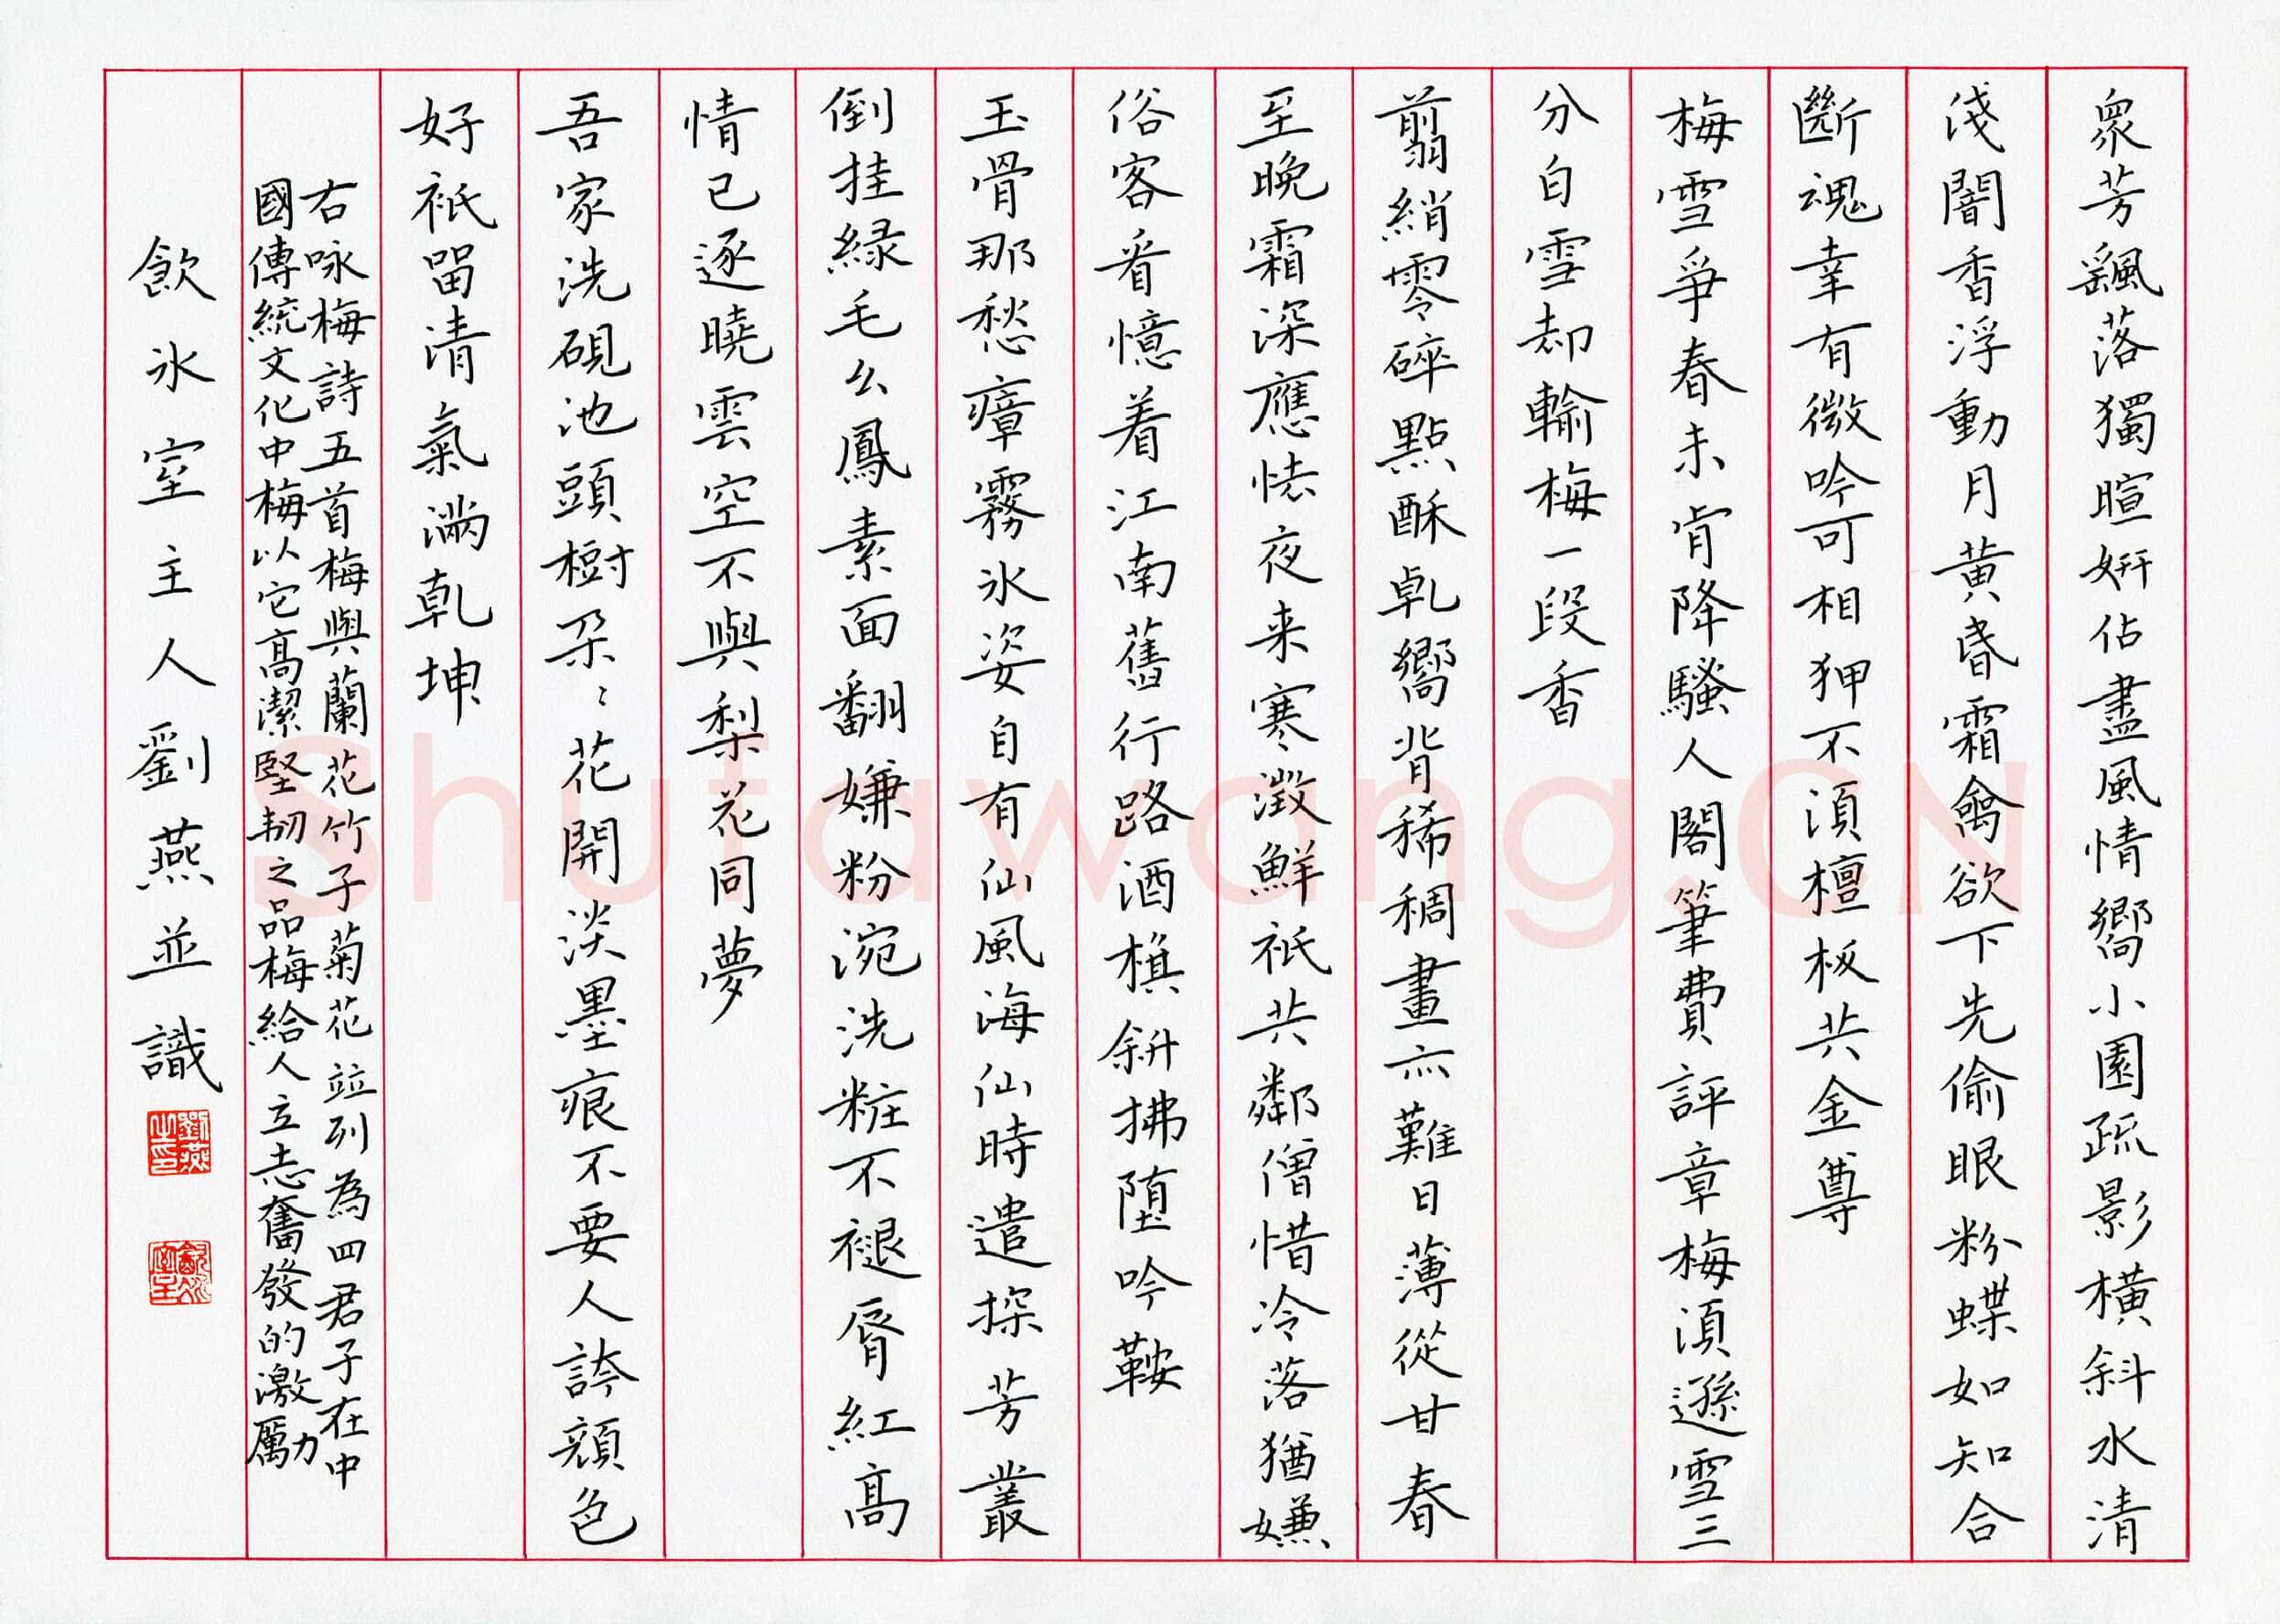 衆芳颻落獨暄妍佔盡風情嚮小園疏影橫斜水清
浅闇香浮動月黄昏霜禽欲下先偷眼粉蝶如知合
斷魂幸有微吟可相狎不須檀板共金尊
梅雪爭春未肯降騷人閣筆費評章梅須遜雪三
分白雪却輸梅一段香
翦綃零碎點酥乾嚮背稀稠畫亦難日薄從甘春
至晚霜深應怯夜来寒澂鮮祇共鄰僧惜冷落猶嫌
俗客看憶着江南舊行路酒旗斜拂堕吟鞍
玉骨那愁瘴霧冰姿自有仙風海仙時遣探芳叢
倒挂緑毛幺鳳素面翻嫌粉涴洗粧不褪脣紅高
情已逐曉雲空不與梨花同夢
吾家洗硯池頭樹朶〻花開淡墨痕不要人誇顔色
好祇留清氣滿乾坤
右咏梅詩五首梅與蘭花竹子菊花並列為四君子在中
國傳統文化中梅以它高潔堅韌之品梅給人立志奮發的激勵
飲冰室主人劉燕並識
劉燕之印
飲冰室主
Shufawang.CN